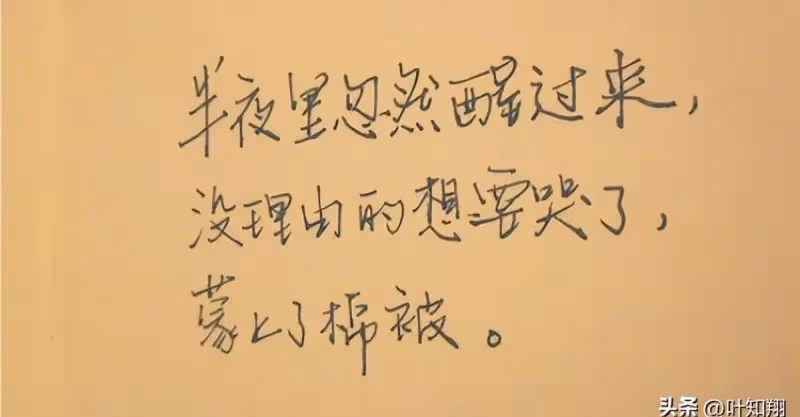 半夜里忽然醒过来，
没理由的想要哭了，
蒙上了棉被。
头条 @叶知翔